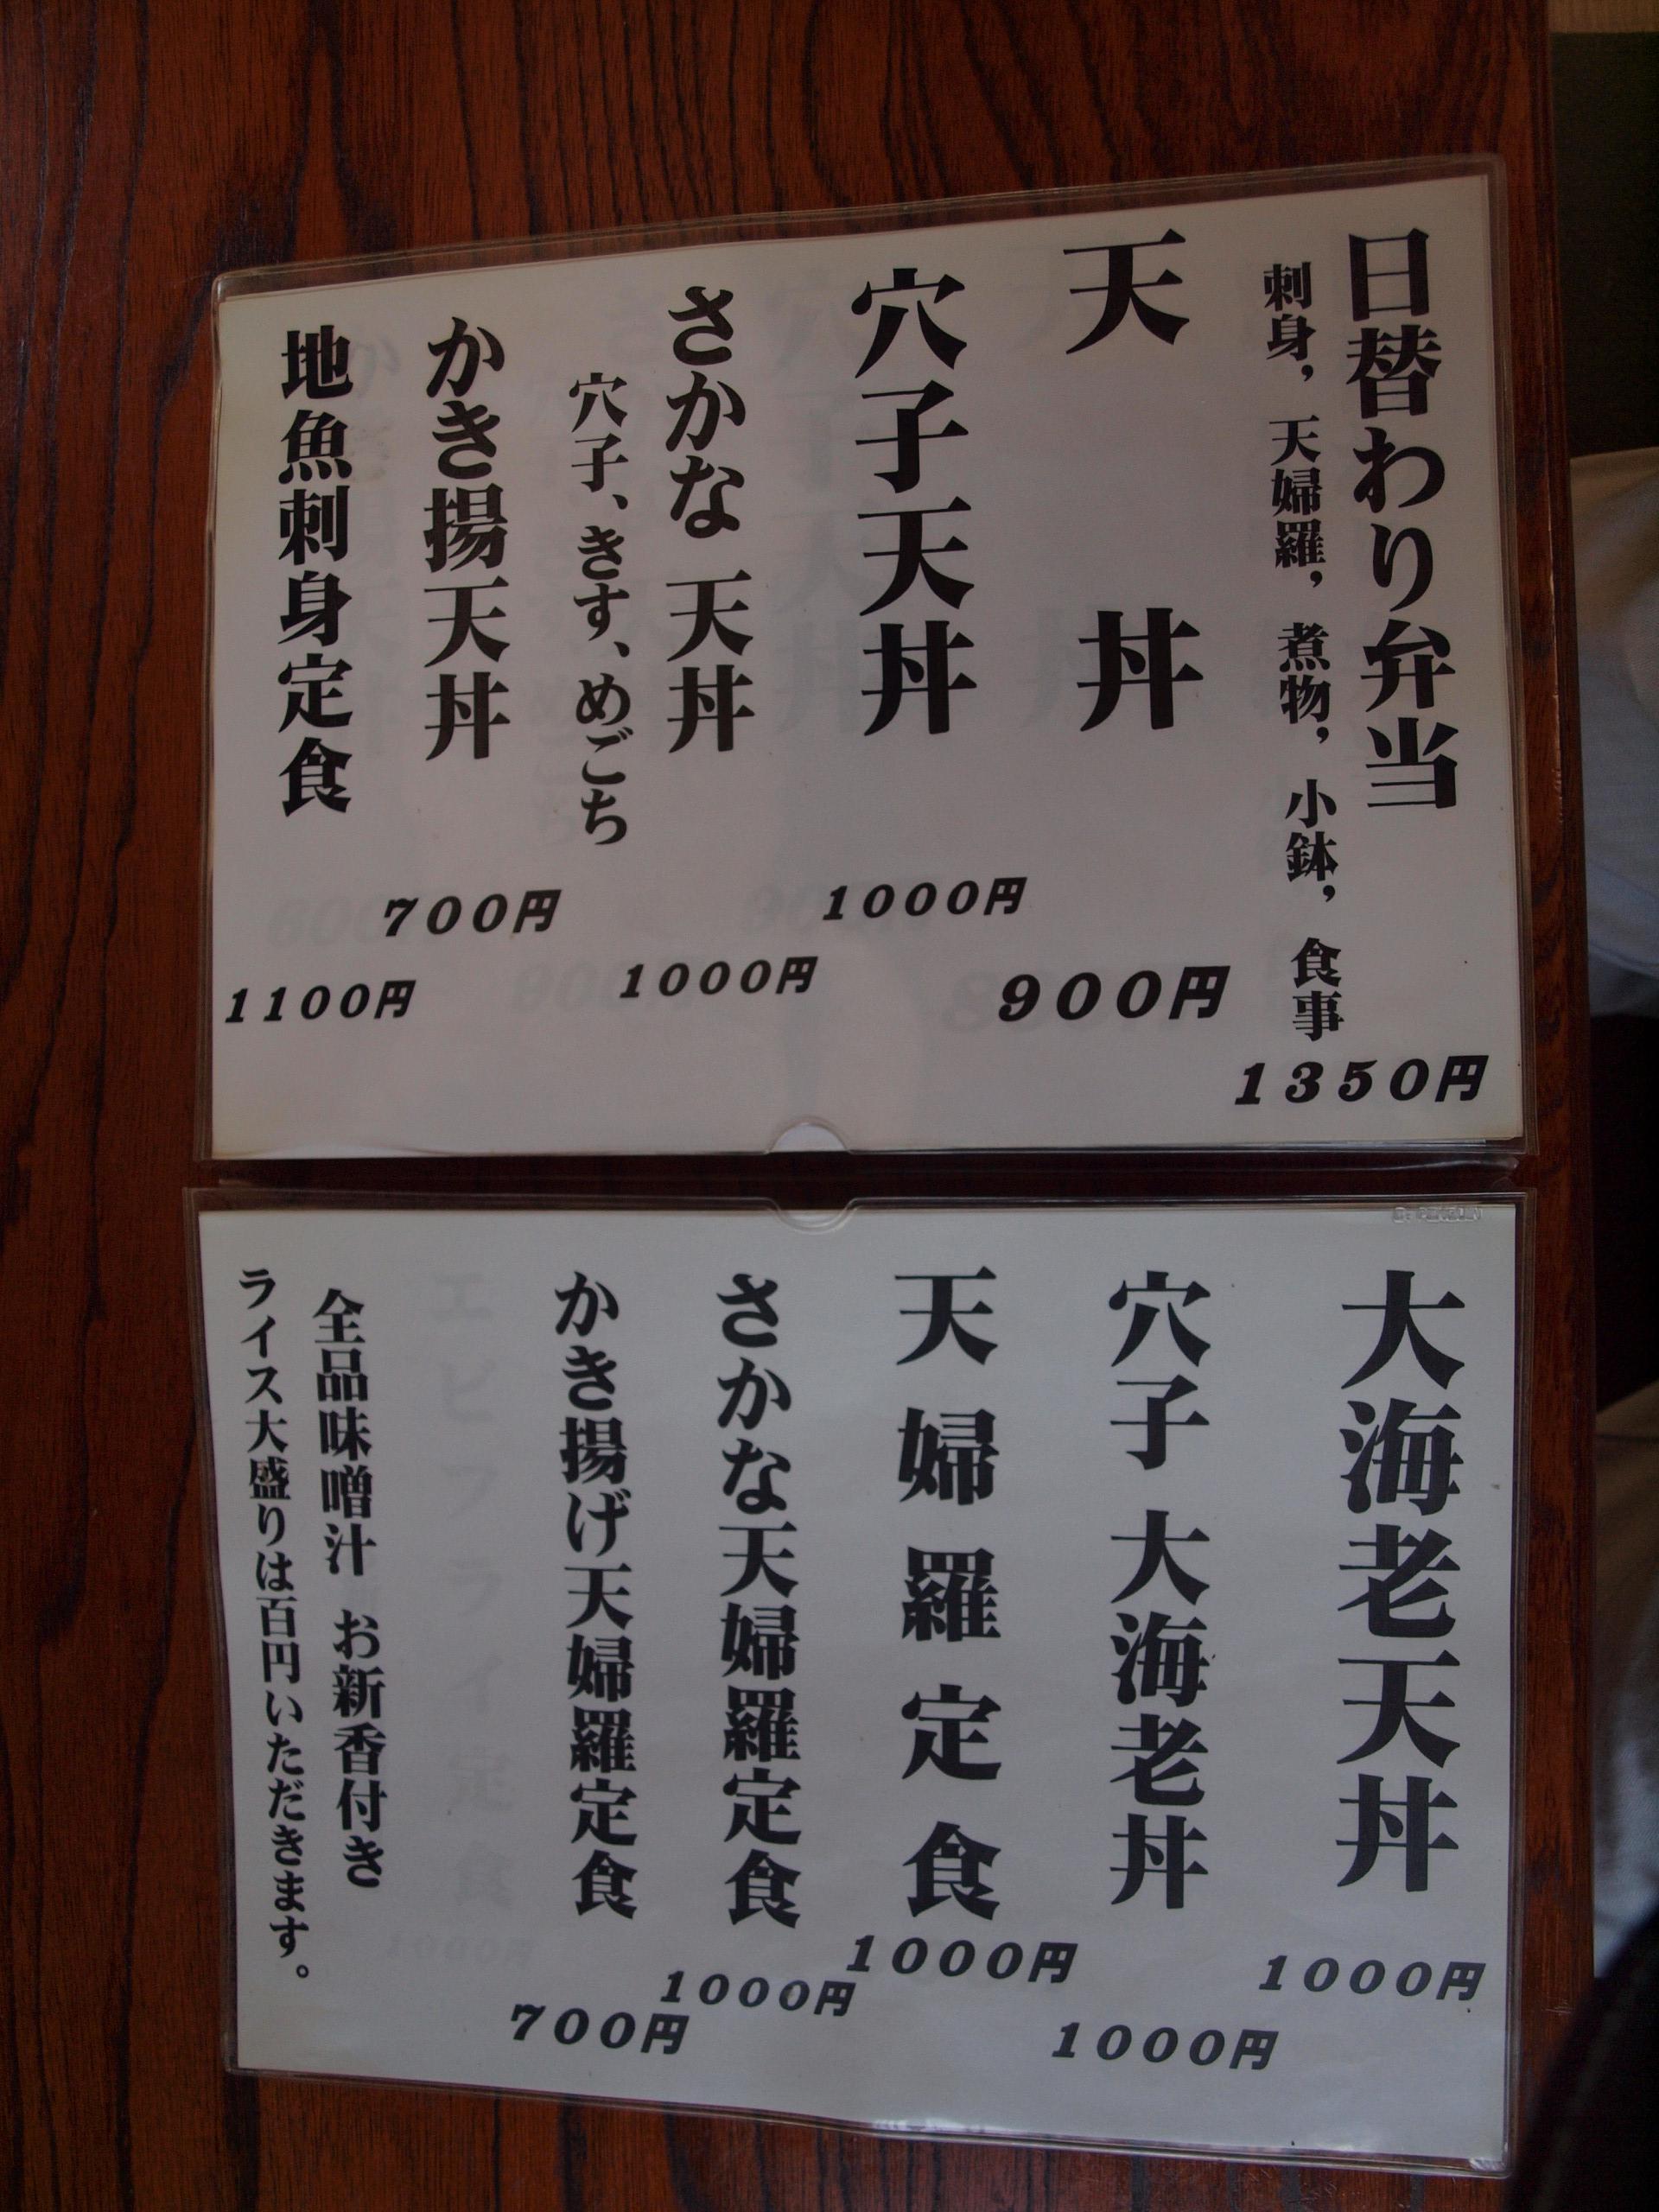 日替わり弁当
刺身，天婦羅，煮物，小鉢，食事
1350円
天丼
900円
穴子天丼
1000円
さかな天丼
穴子、きす、めごち
1000円
かき揚天丼
700円
地魚刺身定食
1100円
大海老天丼
1000円
穴子大海老丼
1000円
天婦羅定食
1000円
さかな天婦羅定食
1000円
かき揚げ天婦羅定食
700円
エビフライ定食
1000円
全品味噌汁 お新香付き
ライス大盛りは百円いただきます。